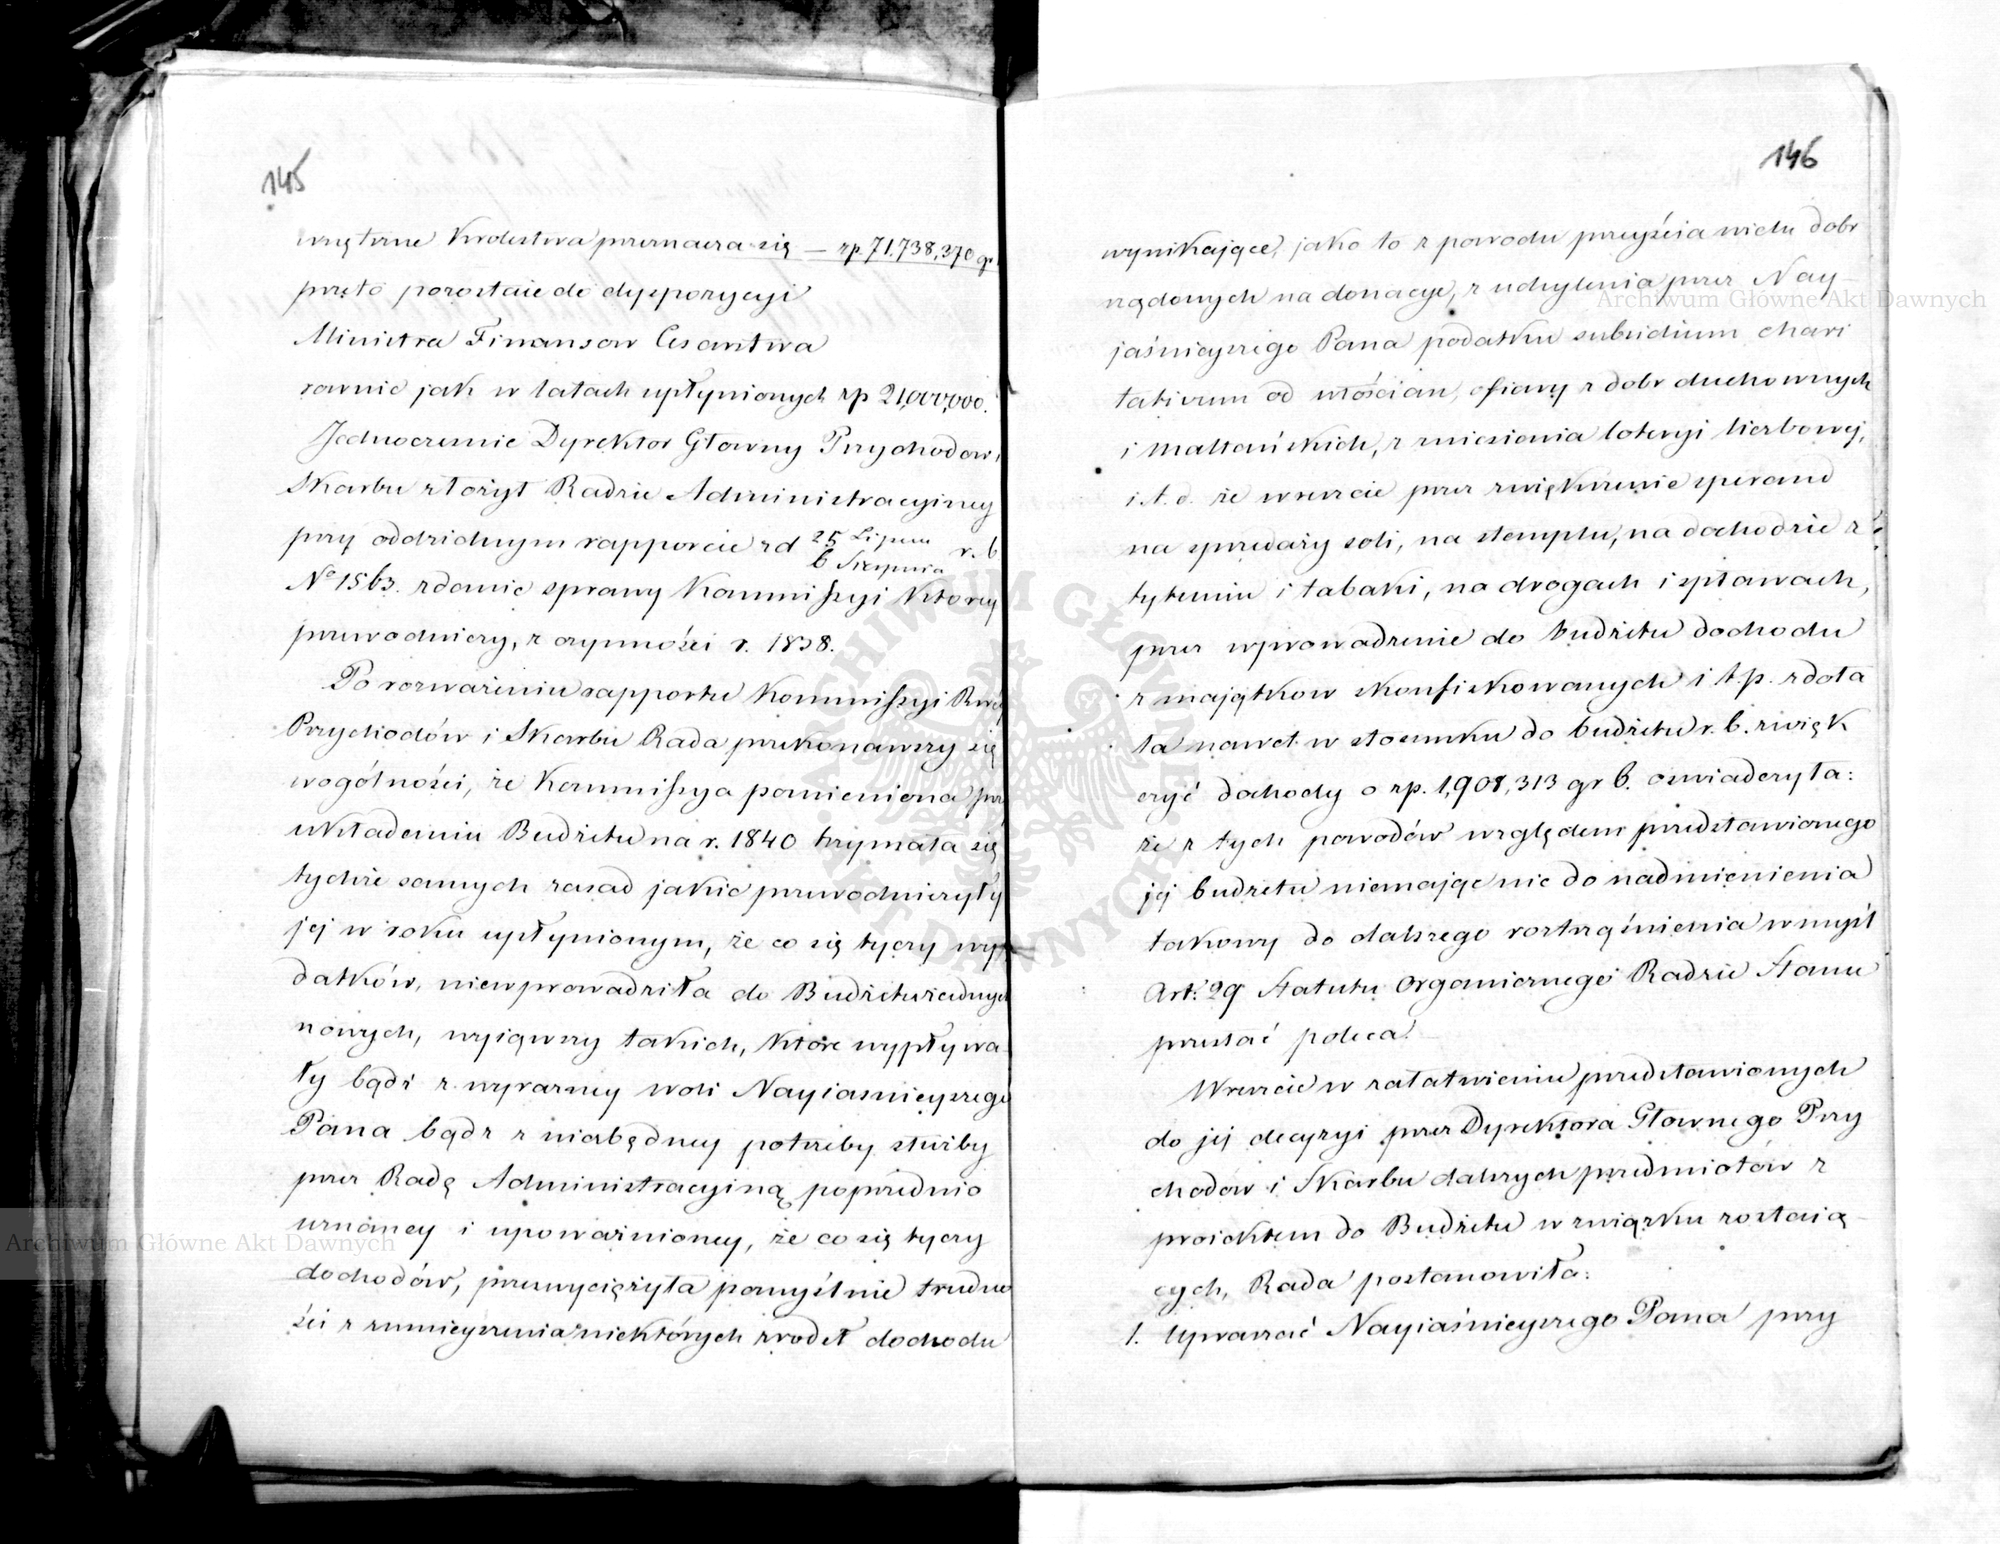 145
wnętrzne Krolestwa przeznacza się — zp. 71,738,370 gr
przeto pozostaie do dyspozycyi
Ministra Finansow Cesarstwa
rownie jak w latach upłynionych zp 21,000,000.
Jednocześnie Dyrektor Głowny Przychodow
Skarbu złożył Radzie Administracyiney
przy oddzielnym rapporcie zd 25 Lipca / 6 Sierpnia r. b
No 1563. zdanie sprawy Kommissyi ktorey
przewodniczy, z czynności r. 1838.
Po rozważeniu rapportu Kommissyi Rząd
Przychodów i Skarbu Rada przekonawszy się
wogólności, że Kommissya pomieniona przy
układaniu Budżetu na r. 1840 trzymała się
tychże samych zasad jakie przewodniczyły
jej w roku upłynionym, że co się tyczy wy
datków, niewprowadziła do Budżetu żadnych
nowych, wyiąwszy takich, które wypływa-
ły bądź z wyraźney woli Nayiasnieyszego
Pana bądź z niezbędney potrzeby służby
przez Radę Administracyiną poprzednio
uznaney i upoważnioney, że co się tyczy
dochodów, przezwyciężyła pomyślnie trudno
ści z zmnieyszenia niektórych zrodeł dochodu
146
wynikające, jako to z powodu przeyścia wielu dobr
rządowych na donacye, z uchylenia przez Nay-
jaśnieyszego Pana podatku subsidium chari
tativum od włościan, ofiary z dobr duchownych
i Maltańskich, z zniesienia loteryi liczbowej,
i. t. d. że wreszcie przez zwiększenie sperand
na sprzedaży soli, na stemplu, na dochodzie z
tytuniu i tabaki, na drogach i spławach,
przez wprowadzenie do budżetu dochodu
z majątkow skonfiskowanych i t. p. zdoła
ła nawet w stosunku do budżetu r. b. zwięk
szyć dochody o zp. 1,908,313 gr 6. oswiadczyła:
że z tych powodów względem przedstawionego
jej budżetu niemając nic do nadmienienia
takowy do dalszego roztrząśnienia w myśl
Art: 29 Statutu Organicznego Radzie Stanu
przesłać poleca.
Wreszcie w załatwieniu przedstawionych
do jej decyzyi przez Dyrektora Głownego Przy
chodów i Skarbu dalszych przedmiotów z
proiektem do Budżetu w związku zostaią-
cych, Rada postanowiła:
1. Upraszać Nayiaśnieyszego Pana przy
Archiwum Główne Akt Dawnych
Archiwum Główne Akt Dawnych
ARCHIWUM GŁÓWNE AKT DAWNYCH